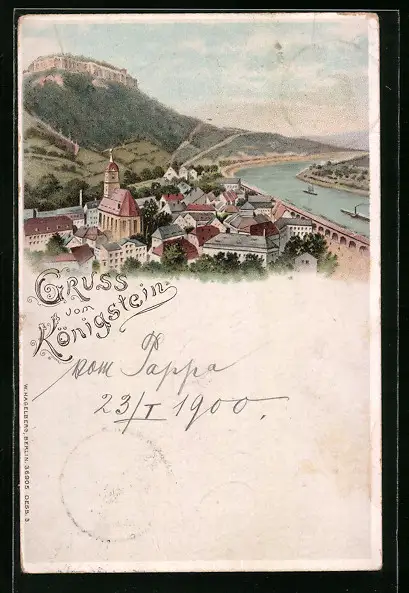 Gruss
vom
Königstein
vom Pappa
23/I 1900.
W. HAGELBERG, BERLIN. 36905 DESS. 3.